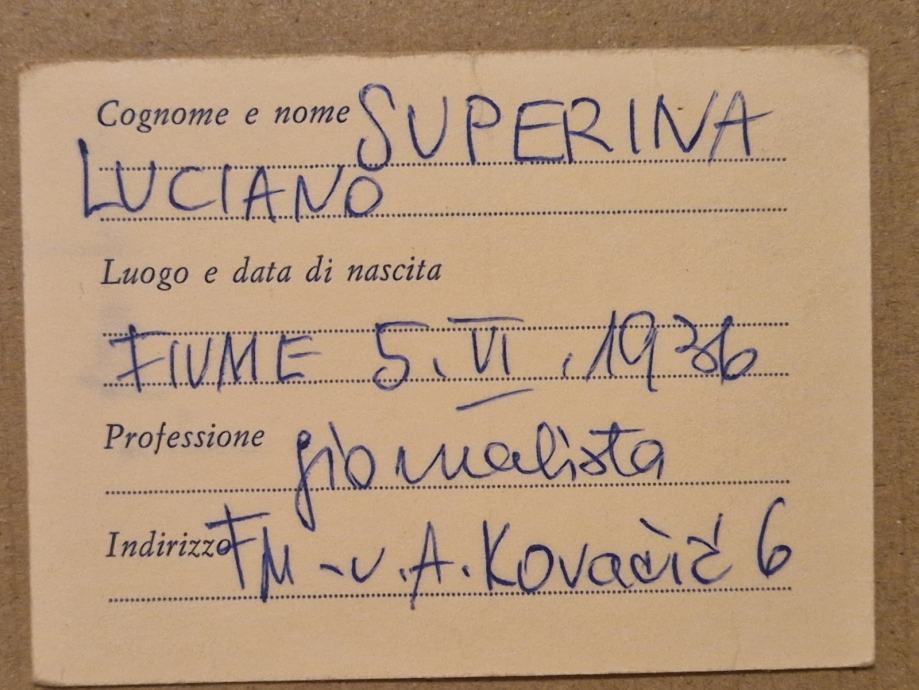 Cognome e nome SUPERINA
LUCIANO
Luogo e data di nascita
FIUME 5. VI . 1936
Professione giornalista
Indirizzo FM - v. A. Kovačić 6